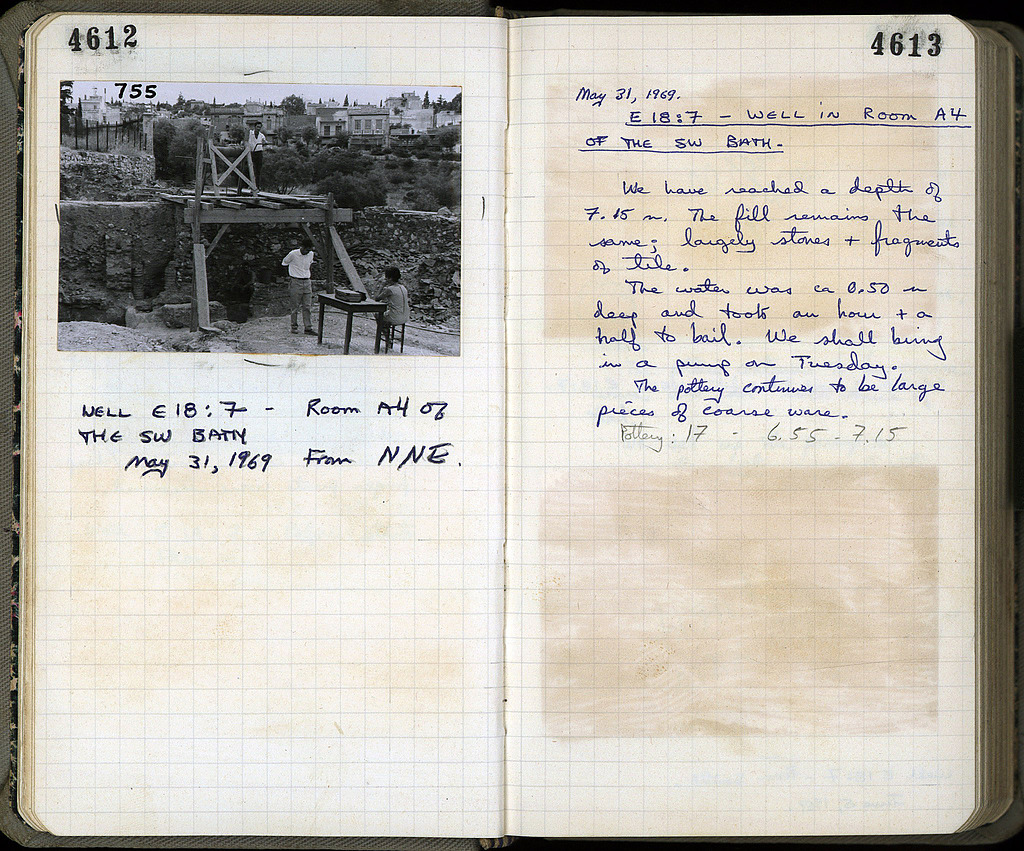 4612
755
WELL E 18:7 - Room A4 of
THE SW BATH
May 31, 1969 From NNE.
4613
May 31, 1969.
E 18:7 - WELL IN ROOM A4
OF THE SW BATH.
We have reached a depth of
7.15 m. The fill remains the
same; largely stones + fragments
of tile.
The water was ca 0.50 m
deep and took an hour + a
half to bail. We shall bring
in a pump on Tuesday.
The pottery continues to be large
pieces of coarse ware.
Pottery: 17 - 6.55 - 7.15